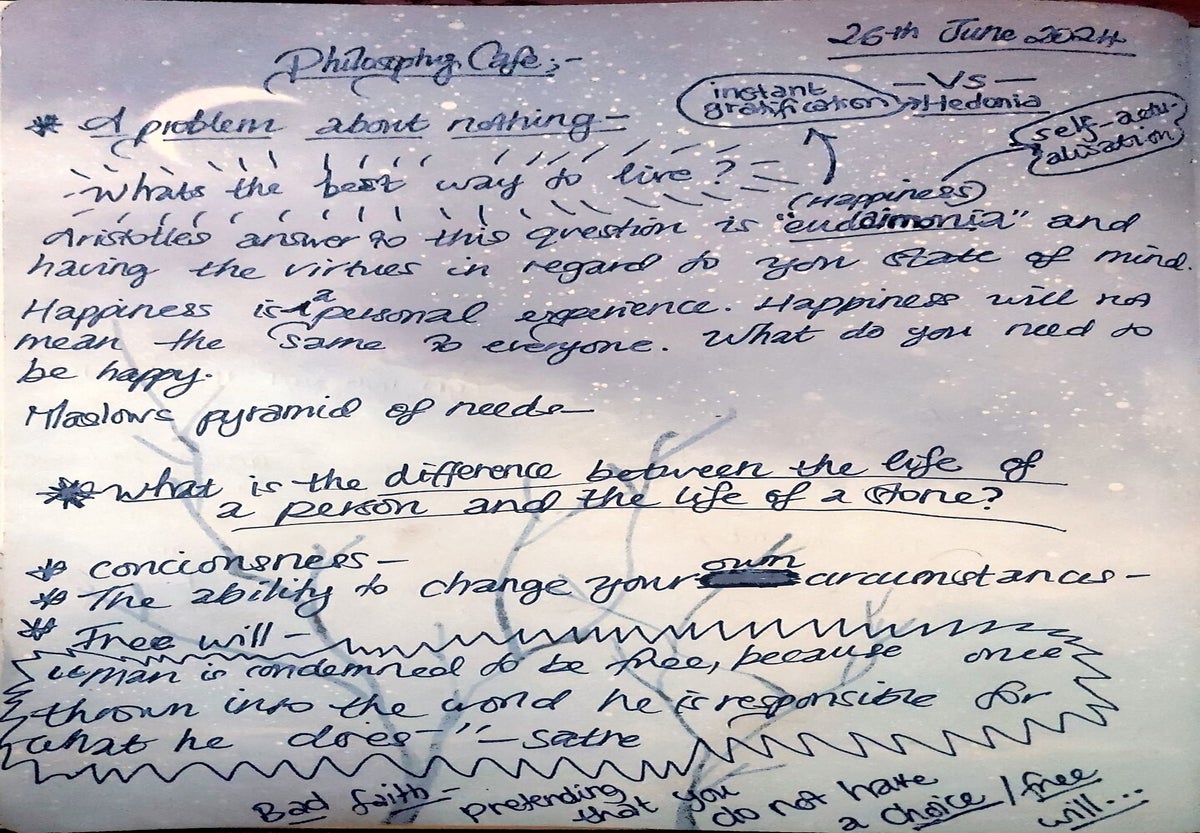 26th June 2024
Philosophy Cafe:-
instant
gratification
— Vs —
Hedonia
* A problem about nothing -
self-actu-
alisation
Whats the best way to live?
(Happiness)
Aristotles answer to this question is "eudaimonia" and
having the virtues in regard to you state of mind.
Happiness is a personal experience. Happiness will not
mean the same to everyone. What do you need to
be happy.
Maslows pyramid of needs-
* What is the difference between the life of
a person and the life of a stone?
* conciousness -
* The ability to change your own circumstances -
* Free will -
"man is condemned to be free, because once
thrown into the world he is responsible for
what he does-" - Satre
Bad faith - pretending that you do not have
a choice / free
will...